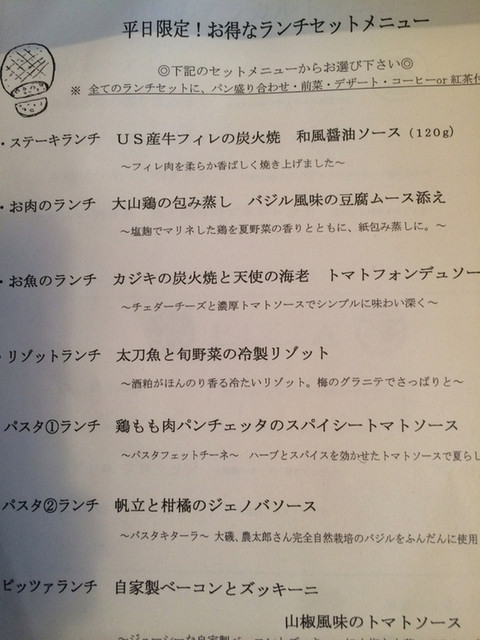 平日限定！お得なランチセットメニュー
◎下記のセットメニューからお選び下さい◎
※ 全てのランチセットに、パン盛り合わせ・前菜・デザート・コーヒーor 紅茶付
・ステーキランチ ＵＳ産牛フィレの炭火焼 和風醤油ソース（120g）
～フィレ肉を柔らか香ばしく焼き上げました～
・お肉のランチ 大山鶏の包み蒸し バジル風味の豆腐ムース添え
～塩麹でマリネした鶏を夏野菜の香りとともに、紙包み蒸しに。～
・お魚のランチ カジキの炭火焼と天使の海老 トマトフォンデュソー
～チェダーチーズと濃厚トマトソースでシンプルに味わい深く～
・リゾットランチ 太刀魚と旬野菜の冷製リゾット
～酒粕がほんのり香る冷たいリゾット。梅のグラニテでさっぱりと～
パスタ①ランチ 鶏もも肉パンチェッタのスパイシートマトソース
～パスタフェットチーネ～ ハーブとスパイスを効かせたトマトソースで夏らし
パスタ②ランチ 帆立と柑橘のジェノバソース
～パスタキターラ～ 大磯、農太郎さん完全自然栽培のバジルをふんだんに使用
ピッツァランチ 自家製ベーコンとズッキーニ
山椒風味のトマトソース